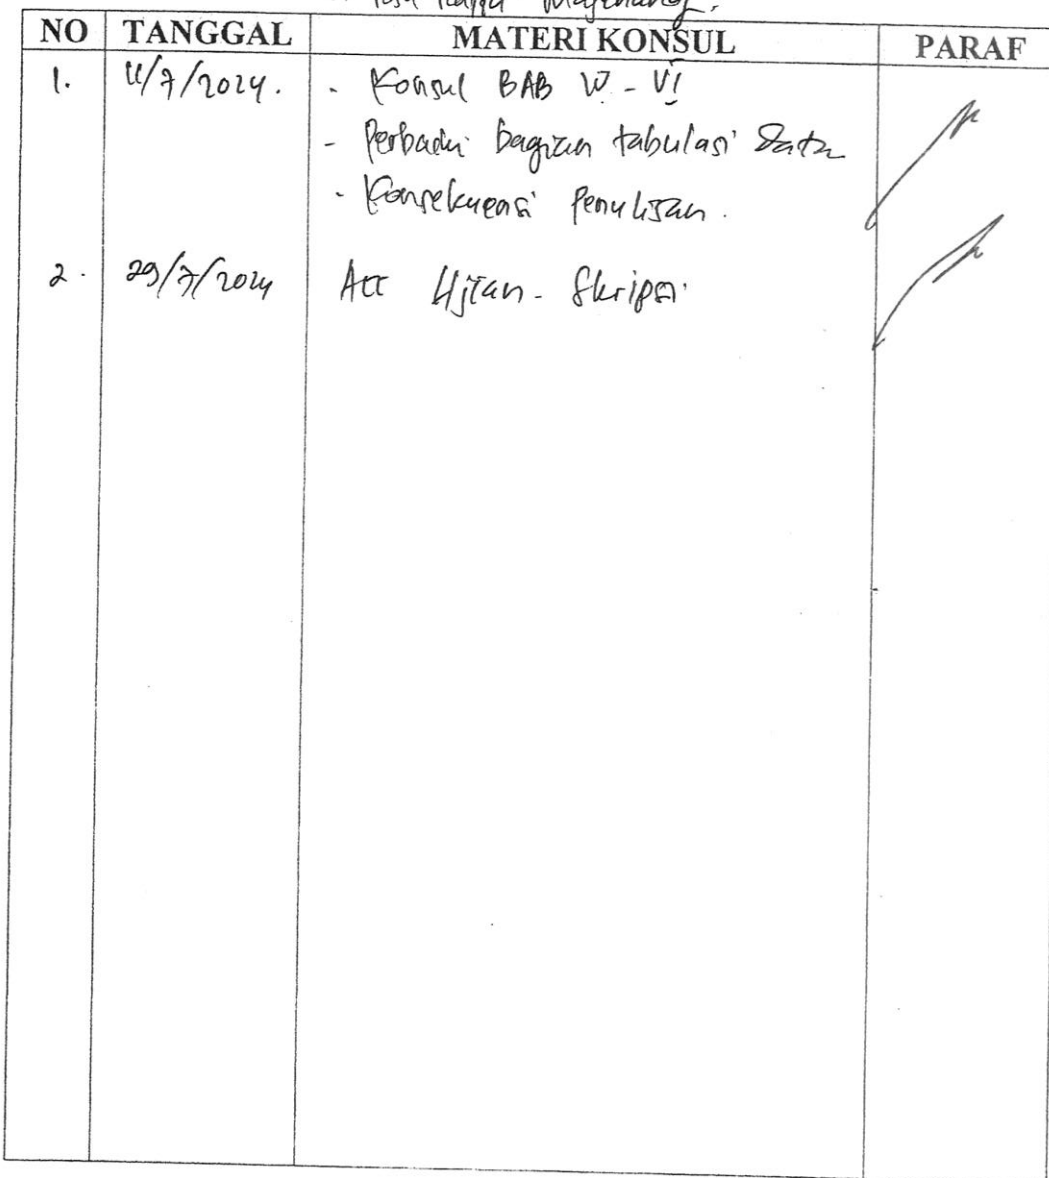 NO TANGGAL MATERI KONSUL PARAF
1. 11/7/2024. - Konsul BAB IV - VI
- Perbaiki bagian tabulasi data
- Konsekuensi Penulisan.
2. 29/7/2024 Acc Ujian Skripsi